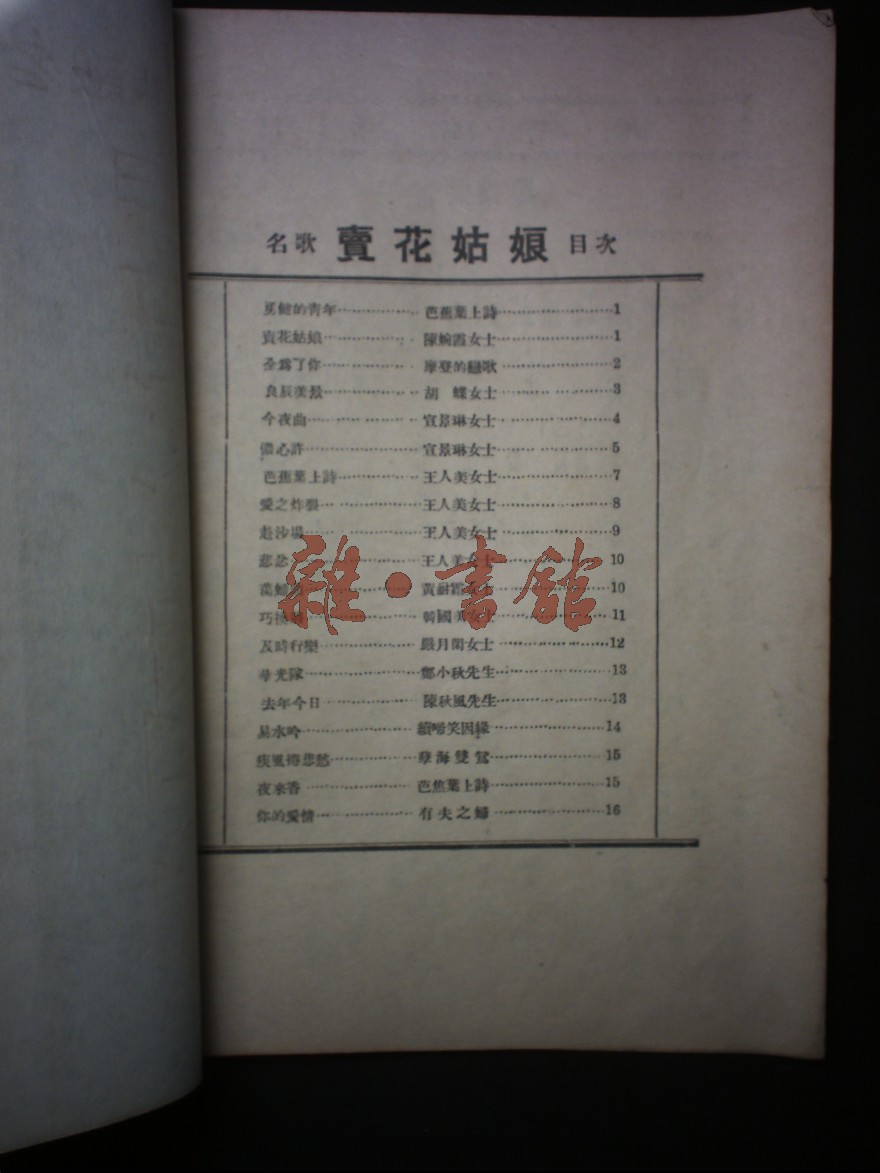 名歌 賣花姑娘 目次
健的青年 芭蕉葉上詩 1
賣花姑娘 陳婉霞女士 1
全爲了你 摩登的戀歌 2
良辰美景 胡 蝶女士 3
今夜曲 宣景琳女士 4
儂心許 宣景琳女士 5
芭蕉葉上詩 王人美女士 7
愛之炸彈 王人美女士 8
赴沙場 王人美女士 9
王人美女士 10
黃耐霜 10
巧 韓國美女士 11
及時行樂 嚴月閒女士 12
光隊 鄭小秋先生 13
去年今日 陳秋風先生 13
易水吟 續啼笑因緣 14
疾風 悲愁 孽海雙鴛 15
夜來香 芭焦葉上詩 15
你的愛情 有夫之婦 16
雜·書館